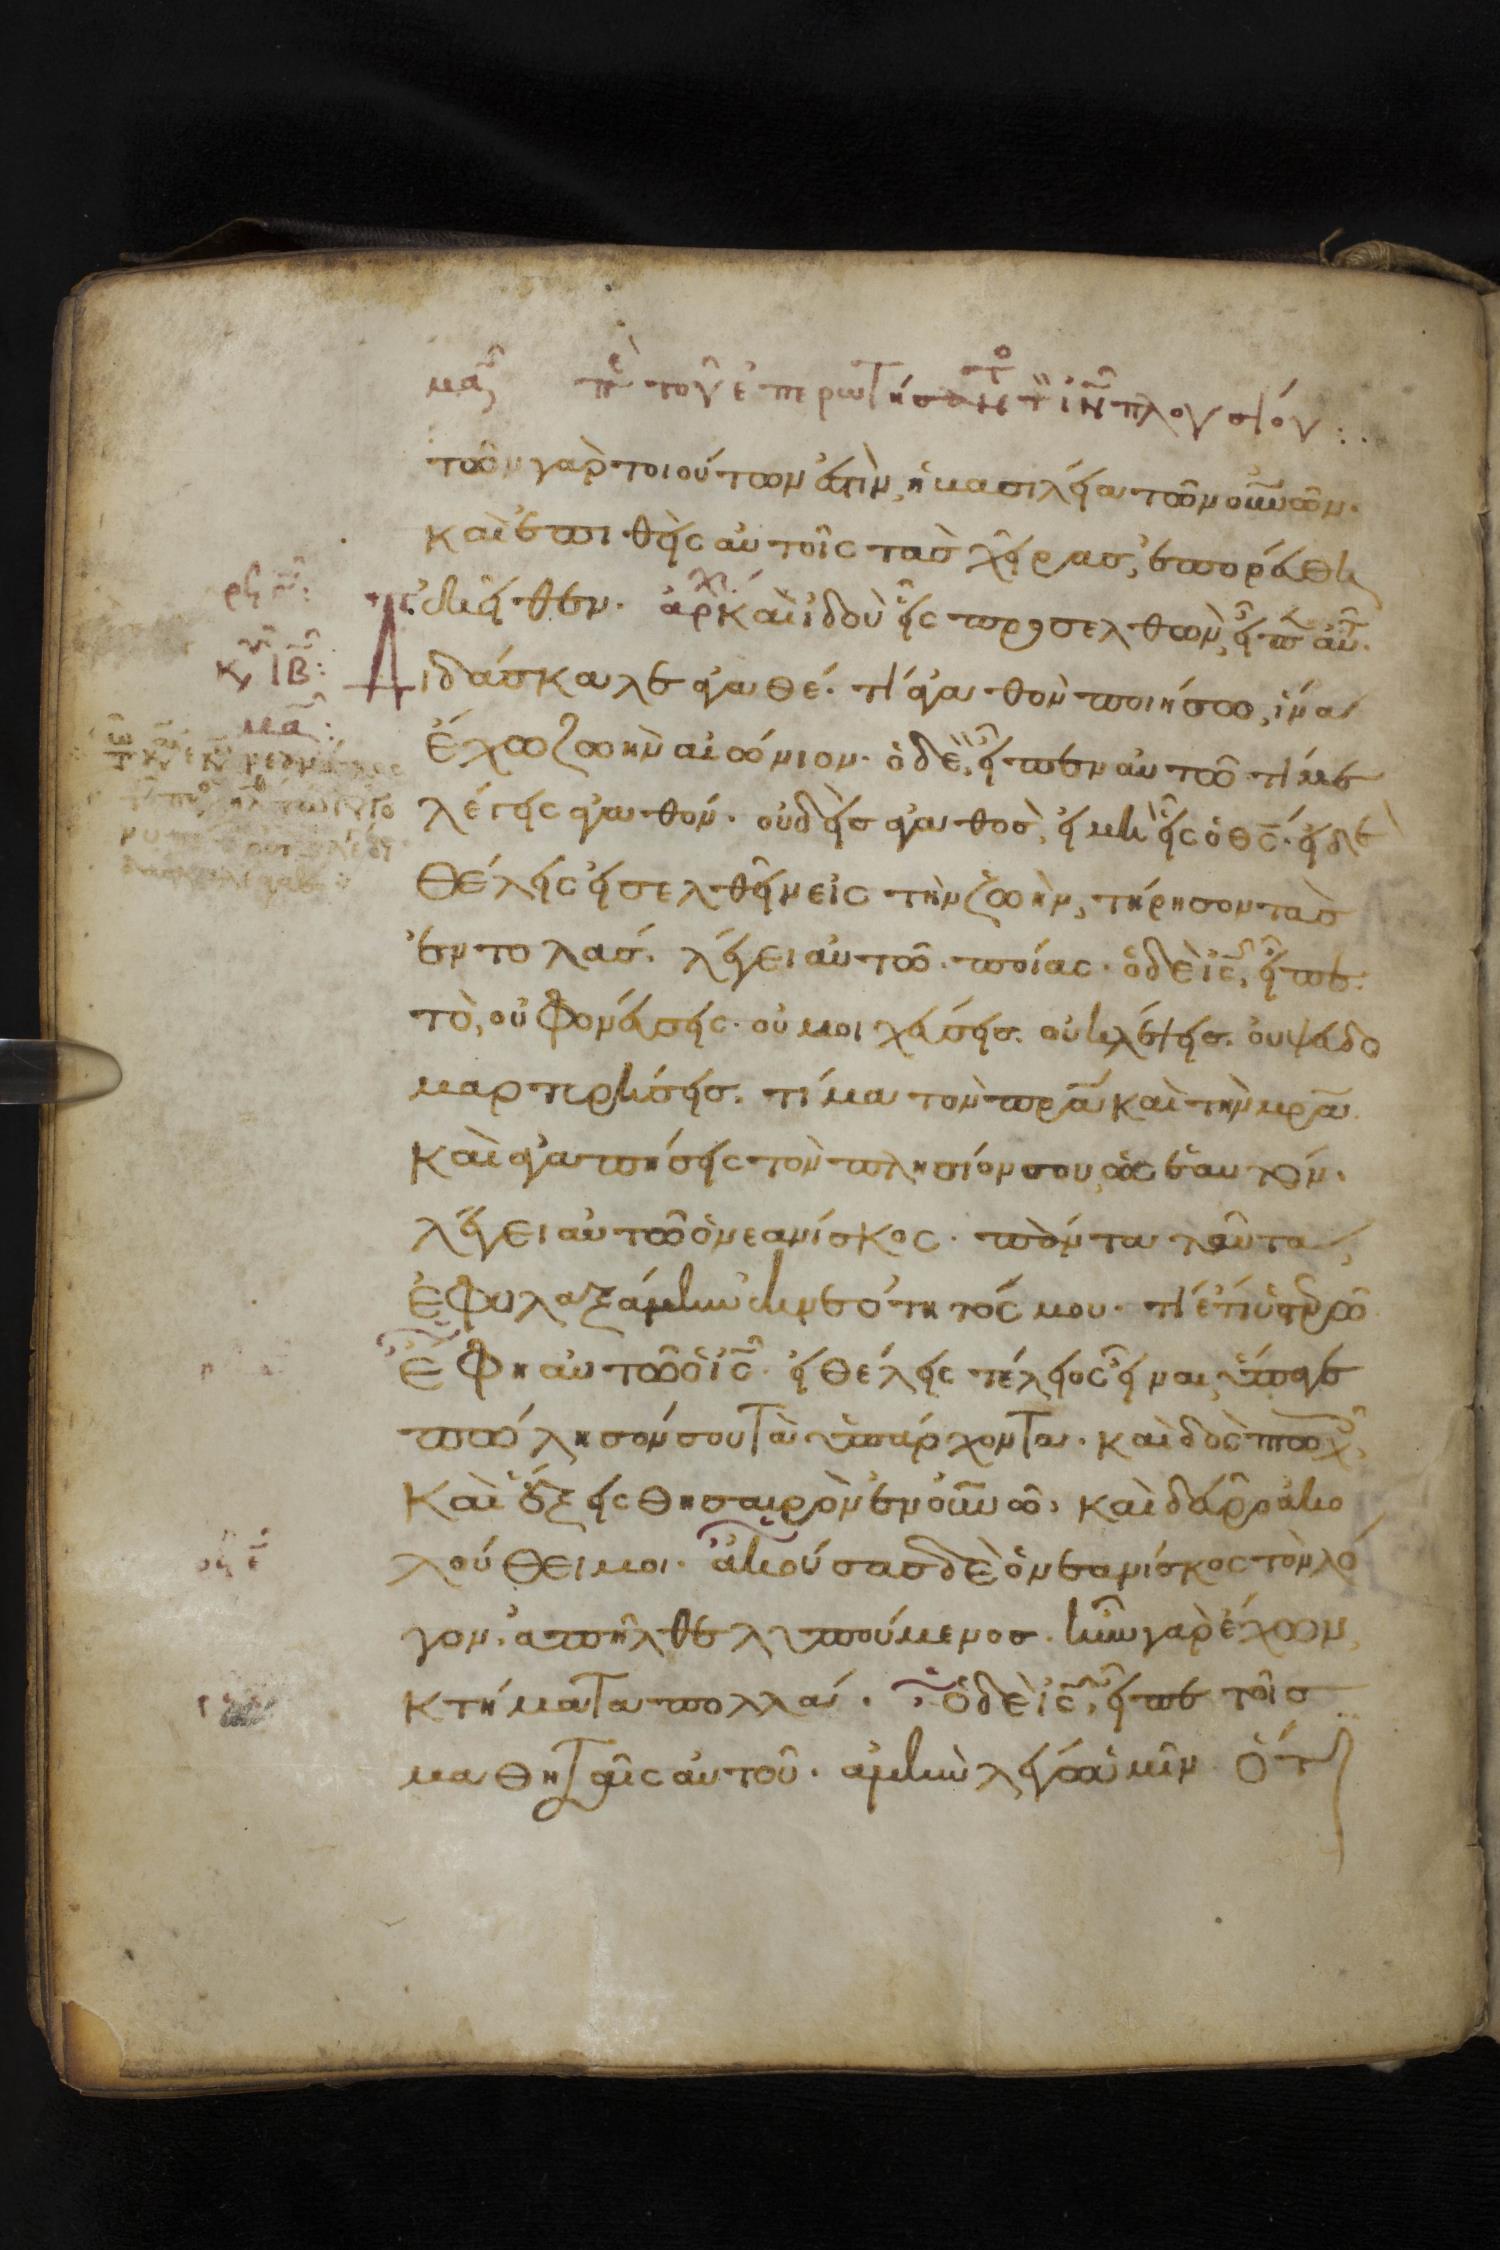 μα πε τοῦ ἐπερωτήσαντος τὸν ιν πλουσίου:
τῶν γὰρ τοιούτων ἐστὶν, ἡ βασιλεία τῶν οὐνῶν.
καὶ ἐπιθεὶς αὐτοῖς τὰς χεῖρας, ἐπορεύθη
ἐκεῖθεν. ἀρχ καὶ ἰδοὺ εἷς προσελθὼν, εἶπ αὐτ.
Διδάσκαλε ἀγαθέ. τί ἀγαθὸν ποιήσω, ἵνα
ἔχω ζωὴν αἰώνιον. ὁ δὲ, εἶπεν αὐτῶ τί με
λέγεις ἀγαθόν. οὐδεὶς ἀγαθὸς, εἰ μὴ εἷς ὁ θς. εἰ δὲ
θέλεις εἰσελθεῖν εἰς τὴν ζωὴν, τήρησον τὰς
ἐντολάς. λέγει αὐτῶ. ποίας. ὁ δὲ ις, εἶπε.
τὸ, οὐ φονεύσεις. οὐ μοιχεύσεις. οὐ κλέψεις. οὐ ψευδο
μαρτυρήσεις. τίμα τὸν πρα καὶ τὴν μρα.
καὶ ἀγαπήσεις τὸν πλησίον σου ὡς ἑαυτόν.
λέγει αὐτῶ ὁ νεανίσκος. πάντα ταῦτα
ἐφυλαξάμην ἐκ νεότητός μου. τί ἔτι ὑστερῶ
ἔφη αὐτῶ ὁ ις. εἰ θέλεις τέλειος εἶναι, ὕπαγε
πώλησόν σου τὰ ὑπάρχοντα. καὶ δὸς πτωχ,
καὶ ἕξεις θησαυρὸν ἐν οὐνῶ. καὶ δεῦρο ἀκο
λούθει μοι. ἀκούσας δὲ ὁ νεανίσκος τὸν λό
γον. ἀπῆλθε λυπούμενος. ἦν γὰρ ἔχων
κτήματα πολλά. ὁ δὲ ις, εἶπε τοῖς
μαθηταῖς αὐτοῦ. ἀμὴν λέγω ὑμῖν ὅτι
κυ ιβ:
μα: